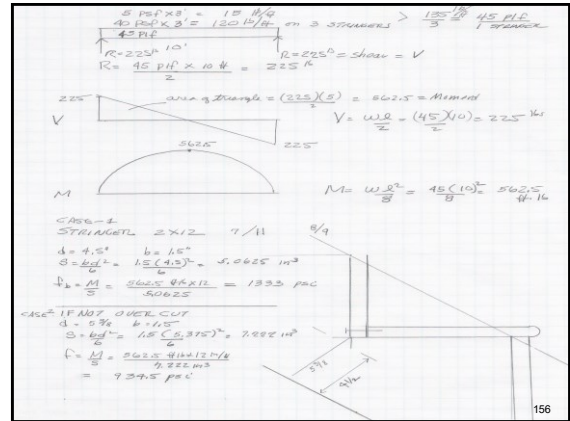 5 PSF x 3' = 15 #/ft
40 PSF x 3' = 120 lb/ft on 3 STRINGERS > 135 / 3 = 45 Plf / 1 STRINGER
45 Plf
R=225# 10' R=225lb = Shear = V
R= 45 plf x 10 ft / 2 = 225 lb
225
area of triangle = (225)(5) / 2 = 562.5 = Moment
V
V = wl / 2 = (45)(10) / 2 = 225 lbs
225
562.5
M
M = wl² / 8 = 45(10)² / 8 = 562.5 ft·lb
CASE-1
STRINGER 2x12 7/11
8/9
d = 4.5" b = 1.5"
S = bd² / 6 = 1.5(4.5)² / 6 = 5.0625 in³
fb = M / S = 562.5 x12 / 5.0625 = 1333 psi
CASE² IF NOT OVER CUT
d = 5 3/8 b = 1.5
S = bd² / 6 = 1.5(5.375)² / 6 = 7.222 in³
f = M / S = 562.5 #ft x 12 in/ft / 7.222 in³
= 934.5 psi
5 3/8
4 1/2
156